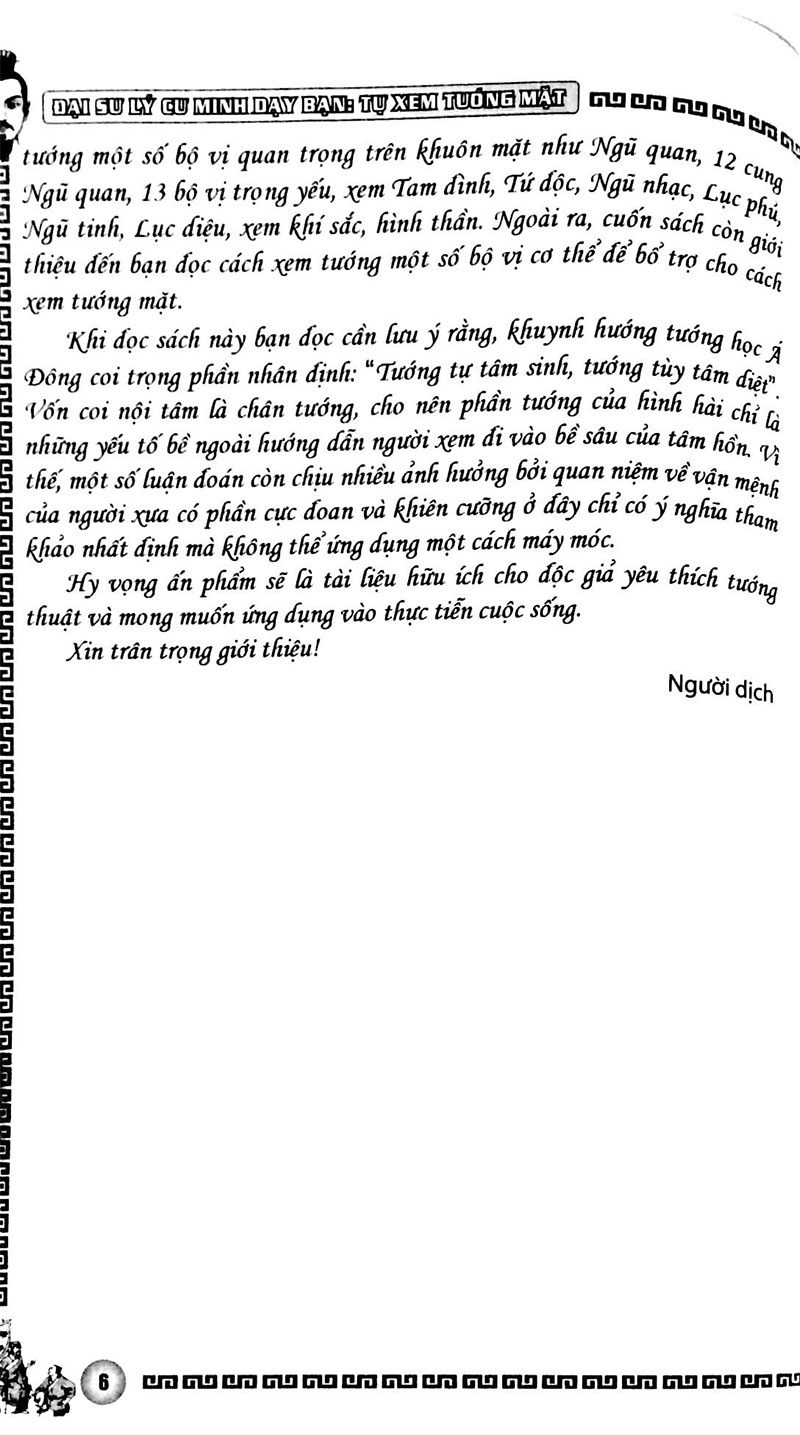 ĐẠI SƯ LÝ CƯ MINH DẠY BẠN: TỰ XEM TƯỚNG MẶT
tướng một số bộ vị quan trọng trên khuôn mặt như Ngũ quan, 12 cung
Ngũ quan, 13 bộ vị trọng yếu, xem Tam đình, Tứ độc, Ngũ nhạc, Lục phủ,
Ngũ tinh, Lục diệu, xem khí sắc, hình thần. Ngoài ra, cuốn sách còn giới
thiệu đến bạn đọc cách xem tướng một số bộ vị cơ thể để bổ trợ cho cách
xem tướng mặt.
Khi đọc sách này bạn đọc cần lưu ý rằng, khuynh hướng tướng học Á
Đông coi trọng phần nhân định: “Tướng tự tâm sinh, tướng tùy tâm diệt”.
Vốn coi nội tâm là chân tướng, cho nên phần tướng của hình hài chỉ là
những yếu tố bề ngoài hướng dẫn người xem đi vào bề sâu của tâm hồn. Vì
thế, một số luận đoán còn chịu nhiều ảnh hưởng bởi quan niệm về vận mệnh
của người xưa có phần cực đoan và khiên cưỡng ở đây chỉ có ý nghĩa tham
khảo nhất định mà không thể ứng dụng một cách máy móc.
Hy vọng ấn phẩm sẽ là tài liệu hữu ích cho độc giả yêu thích tướng
thuật và mong muốn ứng dụng vào thực tiễn cuộc sống.
Xin trân trọng giới thiệu!
Người dịch
6